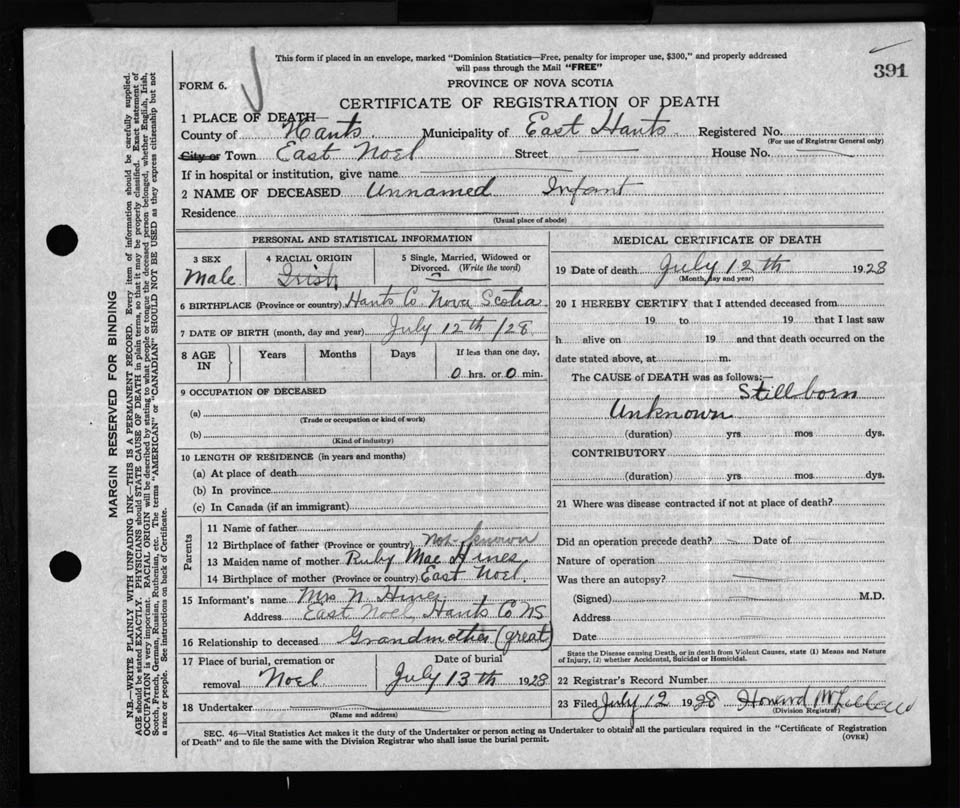 This form if placed in an envelope, marked "Dominion Statistics—Free, penalty for improper use, $300," and properly addressed
will pass through the Mail "FREE"
391
FORM 6.
PROVINCE OF NOVA SCOTIA
CERTIFICATE OF REGISTRATION OF DEATH
1 PLACE OF DEATH—
County of Hants Municipality of East Hants Registered No.
(For use of Registrar General only)
City or Town East Noel Street House No.
If in hospital or institution, give name
2 NAME OF DECEASED Unnamed Infant
Residence
(Usual place of abode)
PERSONAL AND STATISTICAL INFORMATION
3 SEX 4 RACIAL ORIGIN 5 Single, Married, Widowed or
Divorced. (Write the word)
Male Irish S
6 BIRTHPLACE (Province or country) Hants Co Nova Scotia
7 DATE OF BIRTH (month, day and year) July 12th /28
8 AGE IN Years Months Days If less than one day,
0 hrs. or 0 min.
9 OCCUPATION OF DECEASED
(a)
(Trade or occupation or kind of work)
(b)
(Kind of industry)
10 LENGTH OF RESIDENCE (in years and months)
(a) At place of death
(b) In province
(c) In Canada (if an immigrant)
Parents
11 Name of father
12 Birthplace of father (Province or country) Not known
13 Maiden name of mother Ruby Mae Hines
14 Birthplace of mother (Province or country) East Noel.
15 Informant's name Mrs N. Hines
Address East Noel, Hants Co NS
16 Relationship to deceased Grandmother (great)
17 Place of burial, cremation or Date of burial
removal Noel July 13th 1928
18 Undertaker
(Name and address)
MEDICAL CERTIFICATE OF DEATH
19 Date of death July 12th 1928
(Month, day and year)
20 I HEREBY CERTIFY that I attended deceased from
19 to 19 that I last saw
h alive on 19 and that death occurred on the
date stated above, at m.
The CAUSE of DEATH was as follows:—
Stillborn
Unknown
(duration) yrs. mos. dys.
CONTRIBUTORY
(duration) yrs. mos. dys.
21 Where was disease contracted if not at place of death?
Did an operation precede death? Date of
Nature of operation
Was there an autopsy?
(Signed) M.D.
Address
Date
State the Disease causing Death, or in death from Violent Causes, state (1) Means and Nature
of Injury, (2) whether Accidental, Suicidal or Homicidal.
22 Registrar's Record Number
23 Filed July 12 1928 Howard
(Division Registrar)
SEC. 46—Vital Statistics Act makes it the duty of the Undertaker or person acting as Undertaker to obtain all the particulars required in the "Certificate of Registration
of Death" and to file the same with the Division Registrar who shall issue the burial permit.
(OVER)
MARGIN RESERVED FOR BINDING
N.B.—WRITE PLAINLY WITH UNFADING INK—THIS IS A PERMANENT RECORD. Every item of information should be carefully supplied.
AGE should be stated EXACTLY. PHYSICIANS should STATE CAUSE OF DEATH in plain terms, so that it may be properly classified. Exact statement of
OCCUPATION is very important. RACIAL ORIGIN will be described by stating to what people or tongue the deceased person belonged, whether English, Irish,
Scotch, French, German, Russian, Ruthenian, etc. The terms "AMERICAN" or "CANADIAN" SHOULD NOT BE USED as they express citizenship but not
a race or people. See instructions on back of Certificate.